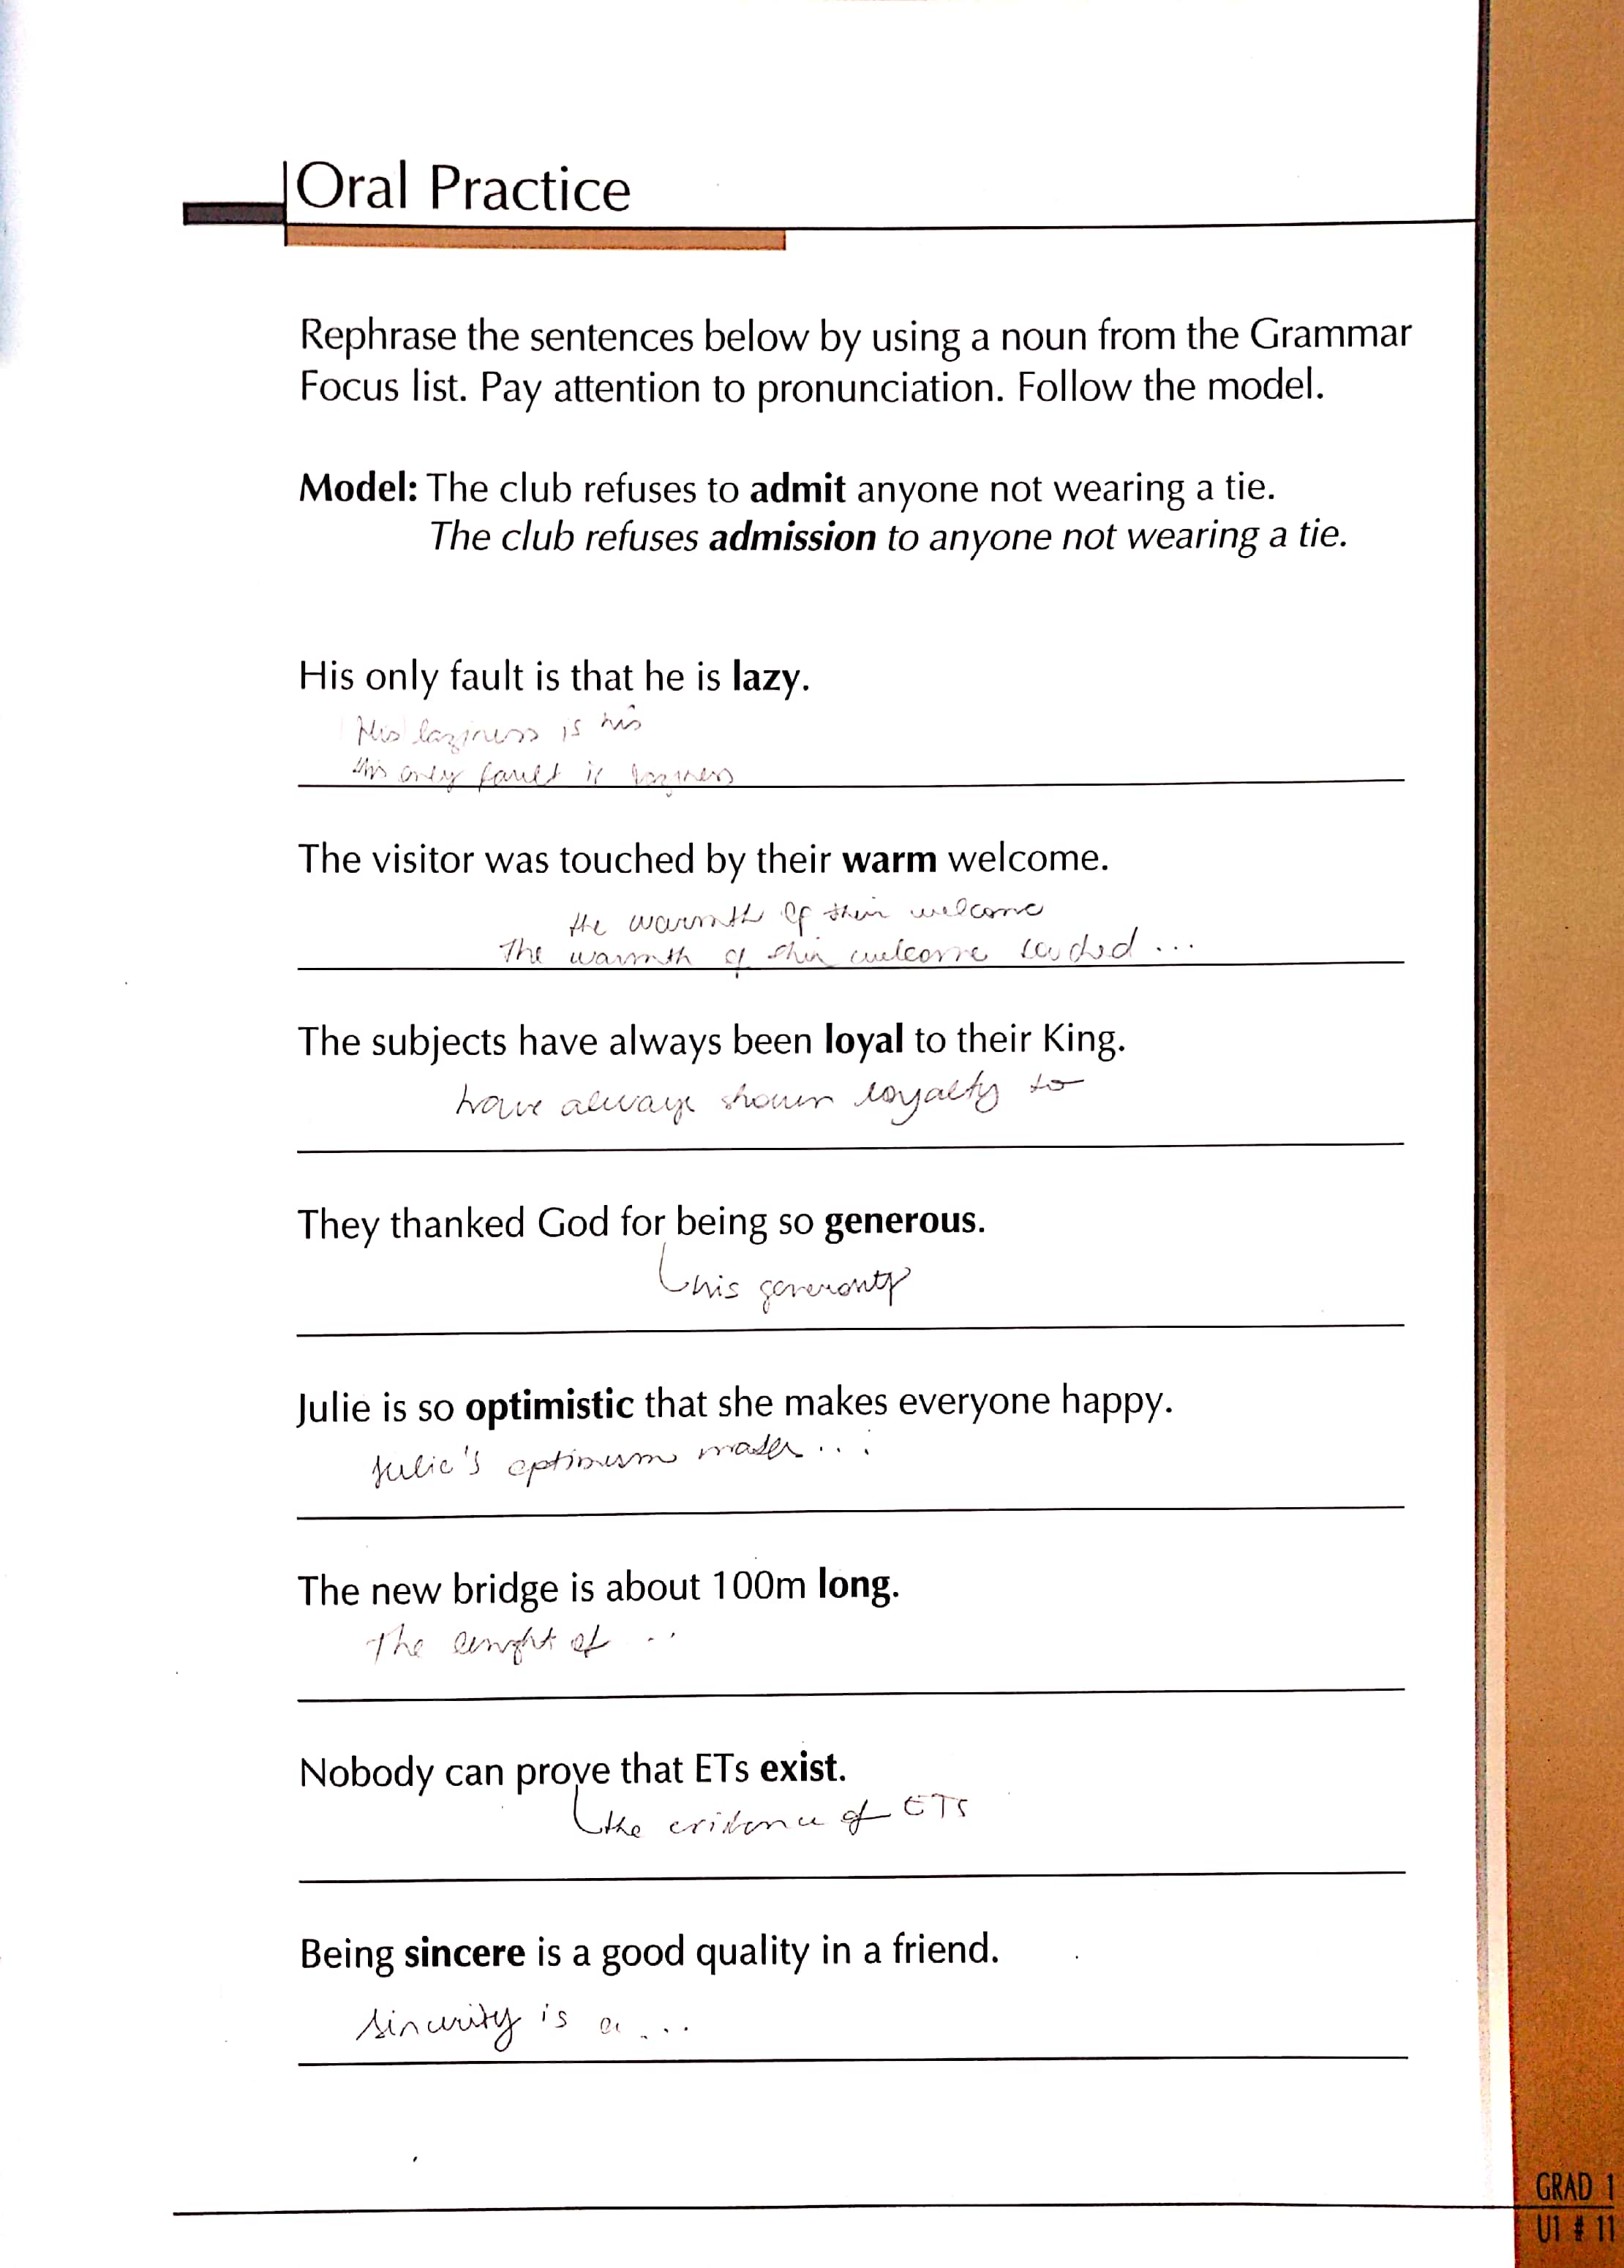 Oral Practice
Rephrase the sentences below by using a noun from the Grammar
Focus list. Pay attention to pronunciation. Follow the model.
Model: The club refuses to admit anyone not wearing a tie.
The club refuses admission to anyone not wearing a tie.
His only fault is that he is lazy.
His laziness is his
His only fault is laziness
The visitor was touched by their warm welcome.
the warmth of their welcome
The warmth of their welcome ...
The subjects have always been loyal to their King.
have always shown loyalty to
They thanked God for being so generous.
his generosity
Julie is so optimistic that she makes everyone happy.
Julie's optimism makes ...
The new bridge is about 100m long.
The of ..
Nobody can prove that ETs exist.
the of ETs
Being sincere is a good quality in a friend.
sincerity is a ...
GRAD 1
U1 # 11